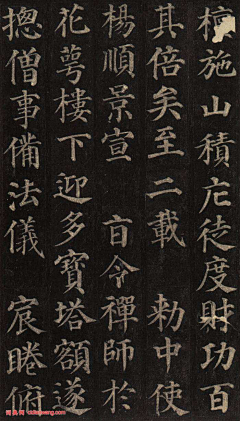 檀施山積庀徒度財功百
其倍矣至二載　勅中使
楊順景宣　旨令禪師於
花萼樓下迎多寶塔額遂
摠僧事備法儀　宸睠俯